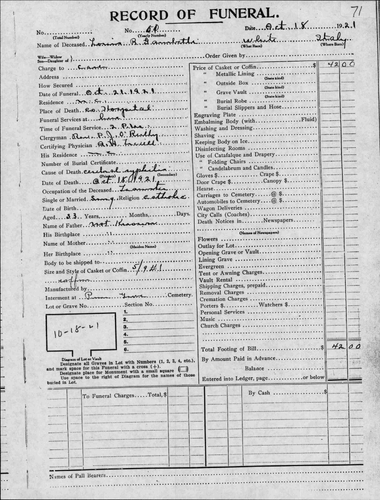 RECORD OF FUNERAL. 71
No. (Total Number) (Yearly Number) Date Oct 18 1921
Name of Deceased A White Italy
(What Race) (Where Born)
Wife Son-Daughter of Order Given by
Charge to Price of Casket or Coffin $ 42 00
Address " Metallic Lining (State kind)
How Secured " Outside Box (State kind)
Date of Funeral Oct. 21, 1921 " Grave Vault (State kind)
Residence " Burial Robe (State kind)
Place of Death Co. Hospital " Burial Slippers and Hose
Funeral Services at Engraving Plate
Time of Funeral Service Embalming Body (with Fluid)
Clergyman Rev. Washing and Dressing
Certifying Physician Shaving
His Residence Keeping Body on Ice
Number of Burial Certificate Disinfecting Rooms
Cause of Death cerebral syphilis Use of Catafalque and Drapery
Date of Death Oct 18, 1921 " Folding Chairs
Occupation of the Deceased Teamster " Candelabrum and Candles
Single or Married Sing Religion Catholic Gloves $ Crape $
Date of Birth Door Crape $ Canopy $
Aged 33 Years Months, Days. Hearse
Name of Father not Known Carriages to Cemetery @ $
His Birthplace Automobiles to Cemetery @ $
Name of Mother (Maiden Name) Wagon Deliveries
Her Birthplace City Calls (Coaches)
Body to be shipped to Death Notices in Newspapers
(Names of Newspapers)
Size and Style of Casket or Coffin 5/9 Flowers
coffin Outlay for Lot
Manufactured by Opening Grave or Vault
Interment at Cemetery. Lining Grave
Lot or Grave No. Section No. Evergreen
Tent or Awning Charges
Vault Rental
Shipping Charges, prepaid
Removal Charges
Cremation Charges
Porters $ Watchers $
Personal Services
Music
Church Charges
1
2
3
4
5
6
10-18-21
Diagram of Lot or Vault
Designate all Graves in Lot with Numbers (1, 2, 3, 4, etc.),
and mark space for this Funeral with a cross (+).
Designate place for Monument with a small square
Use space to the right of Diagram for the names of those
buried in Lot.
Total Footing of Bill $ 42 00
By Amount Paid in Advance
Balance
Entered into Ledger, page or below
To Funeral Charges Total, $ By Cash $
Names of Pall Bearers